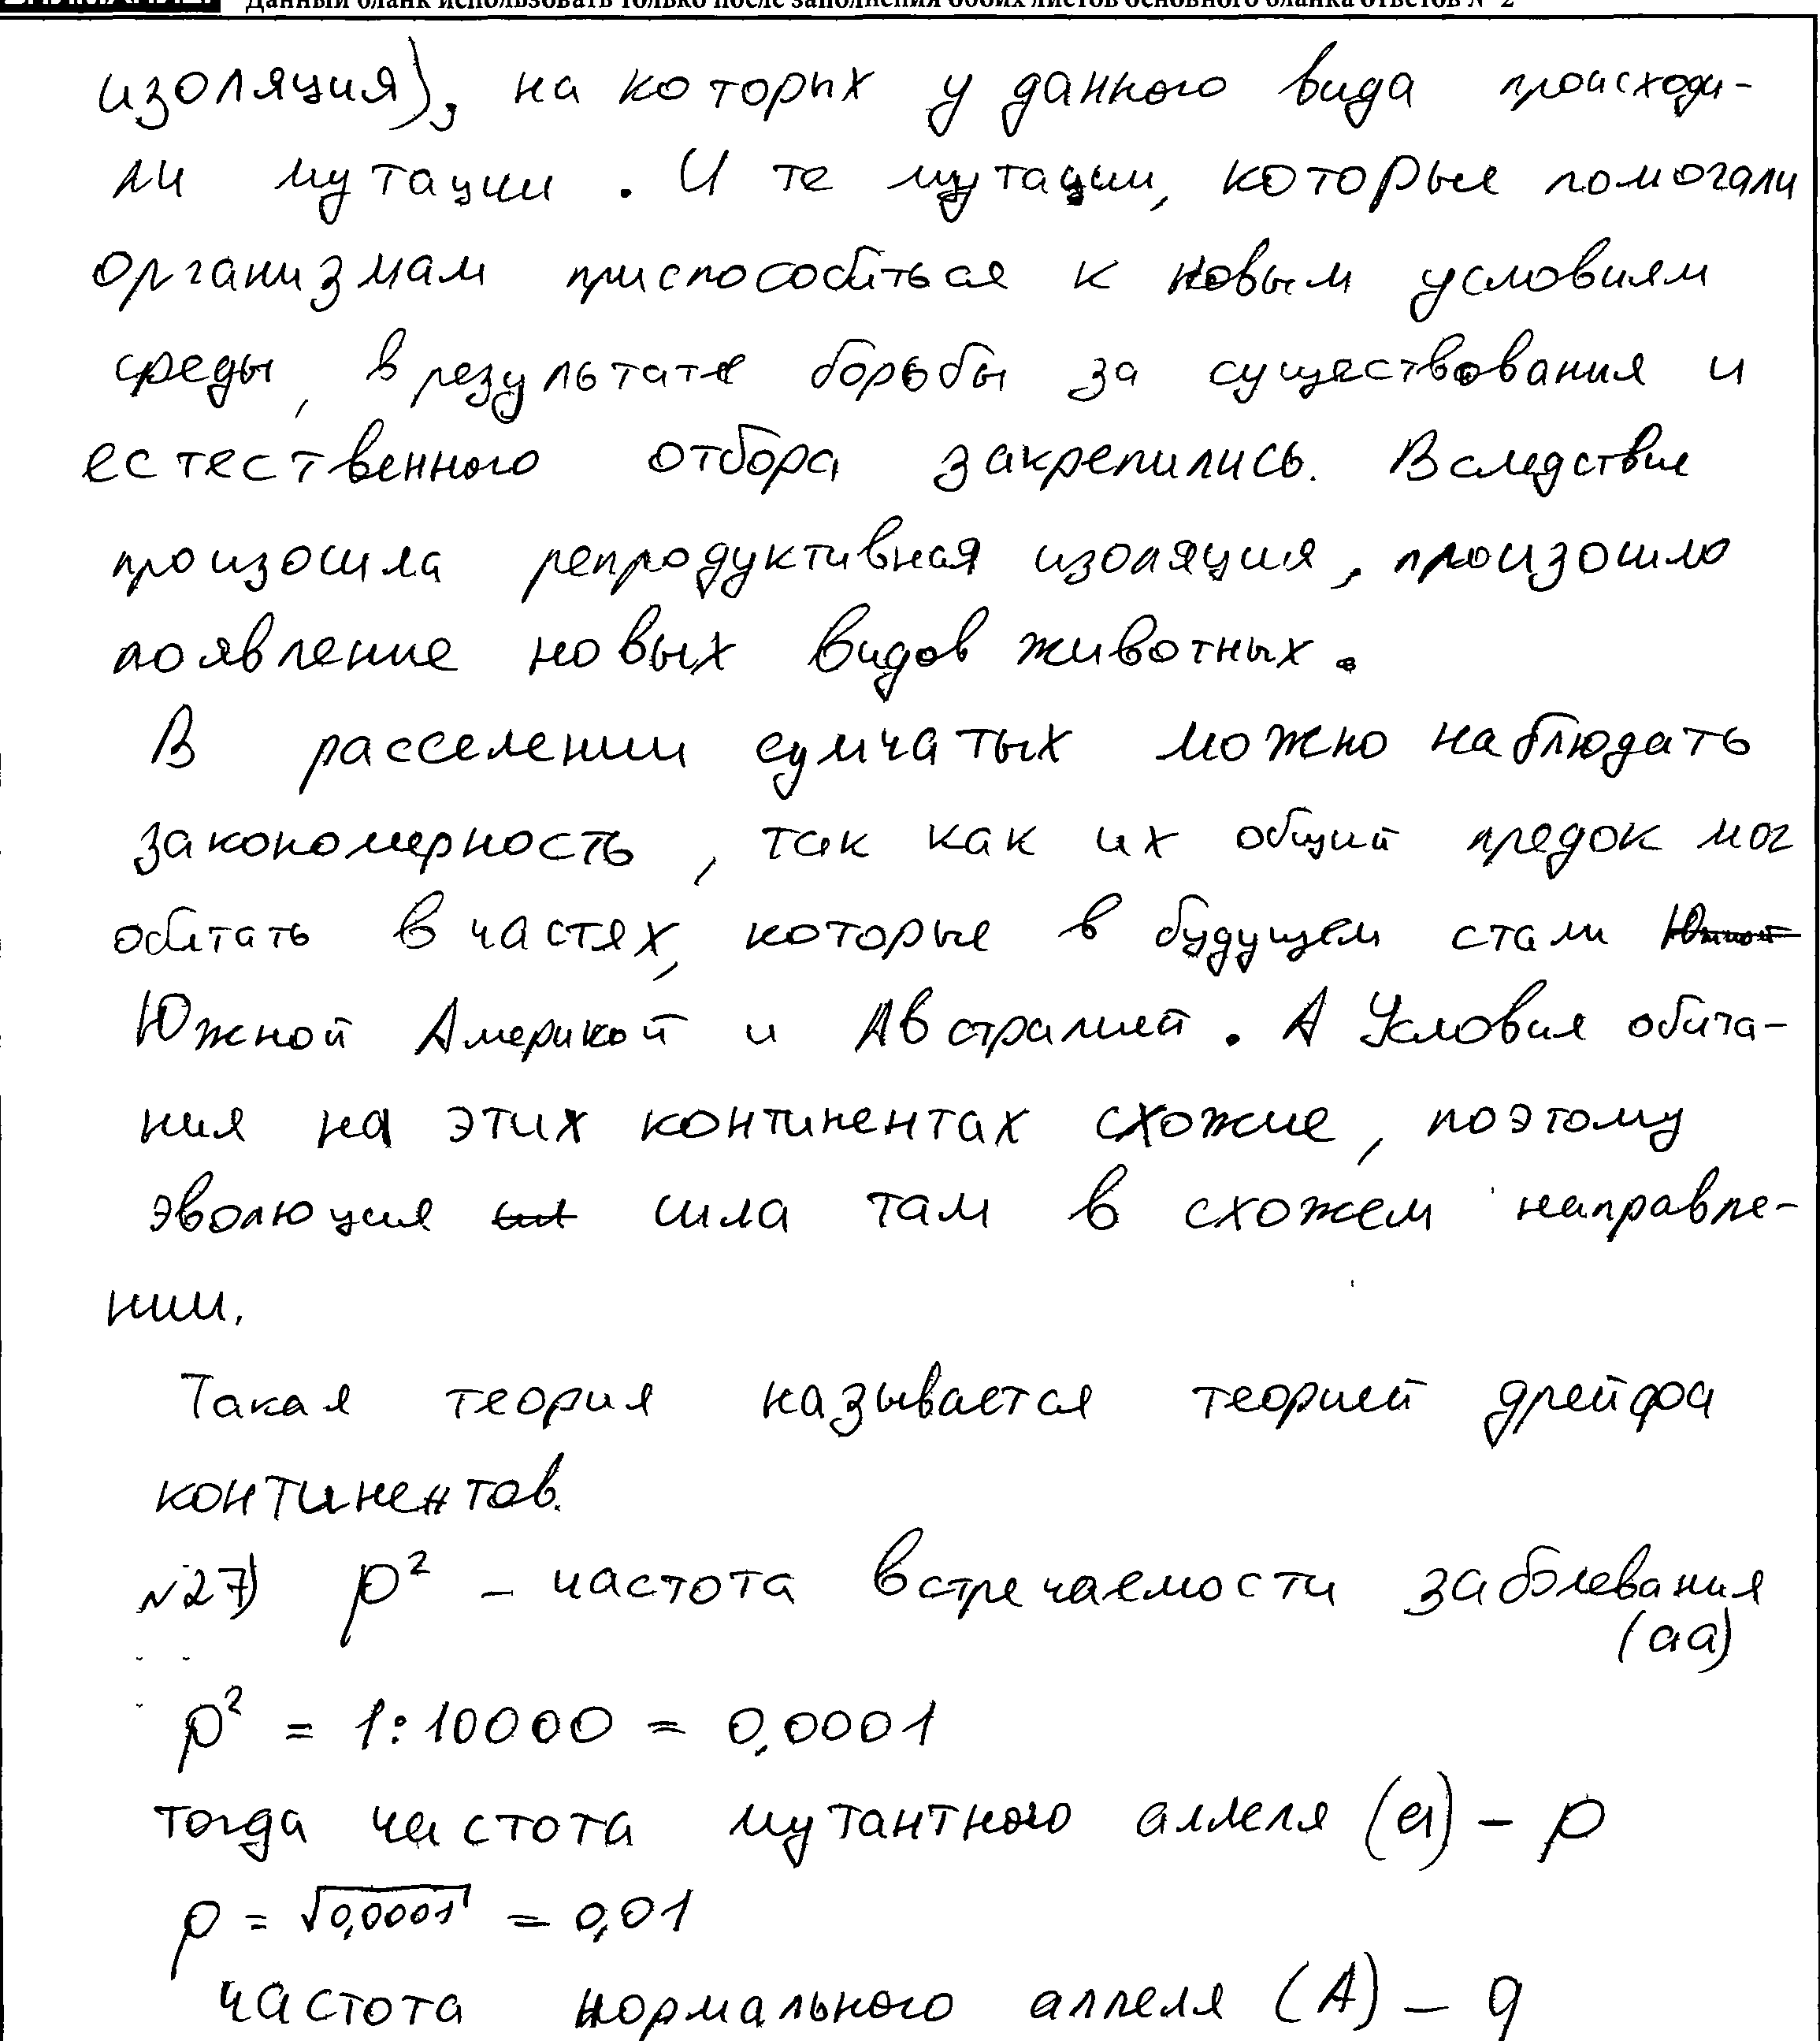 Данный бланк использовать только после заполнения обоих листов основного бланка ответов № 2
изоляция), на которых у данного вида происходи-
ли мутации. И те мутации, которые помогали
организмам приспособиться к новым условиям
среды, в результате борьбы за существования и
естественного отбора закрепились. Вследствие
произошла репродуктивная изоляция, произошло
появление новых видов животных.
В расселении сумчатых можно наблюдать
закономерность, так как их общий предок мог
обитать в частях, которые в будущем стали
Южной Америкой и Австралией. А Условия обита-
ния на этих континентах схожие, поэтому
эволюция шла там в схожем направле-
нии.
Такая теория называется теорией дрейфа
континентов.
№27) p² - частота встречаемости заболевания
(aa)
p² = 1:10000 = 0,0001
тогда частота мутантного аллеля (a) - p
p = √0,0001 = 0,01
частота нормального аллеля (A) - q